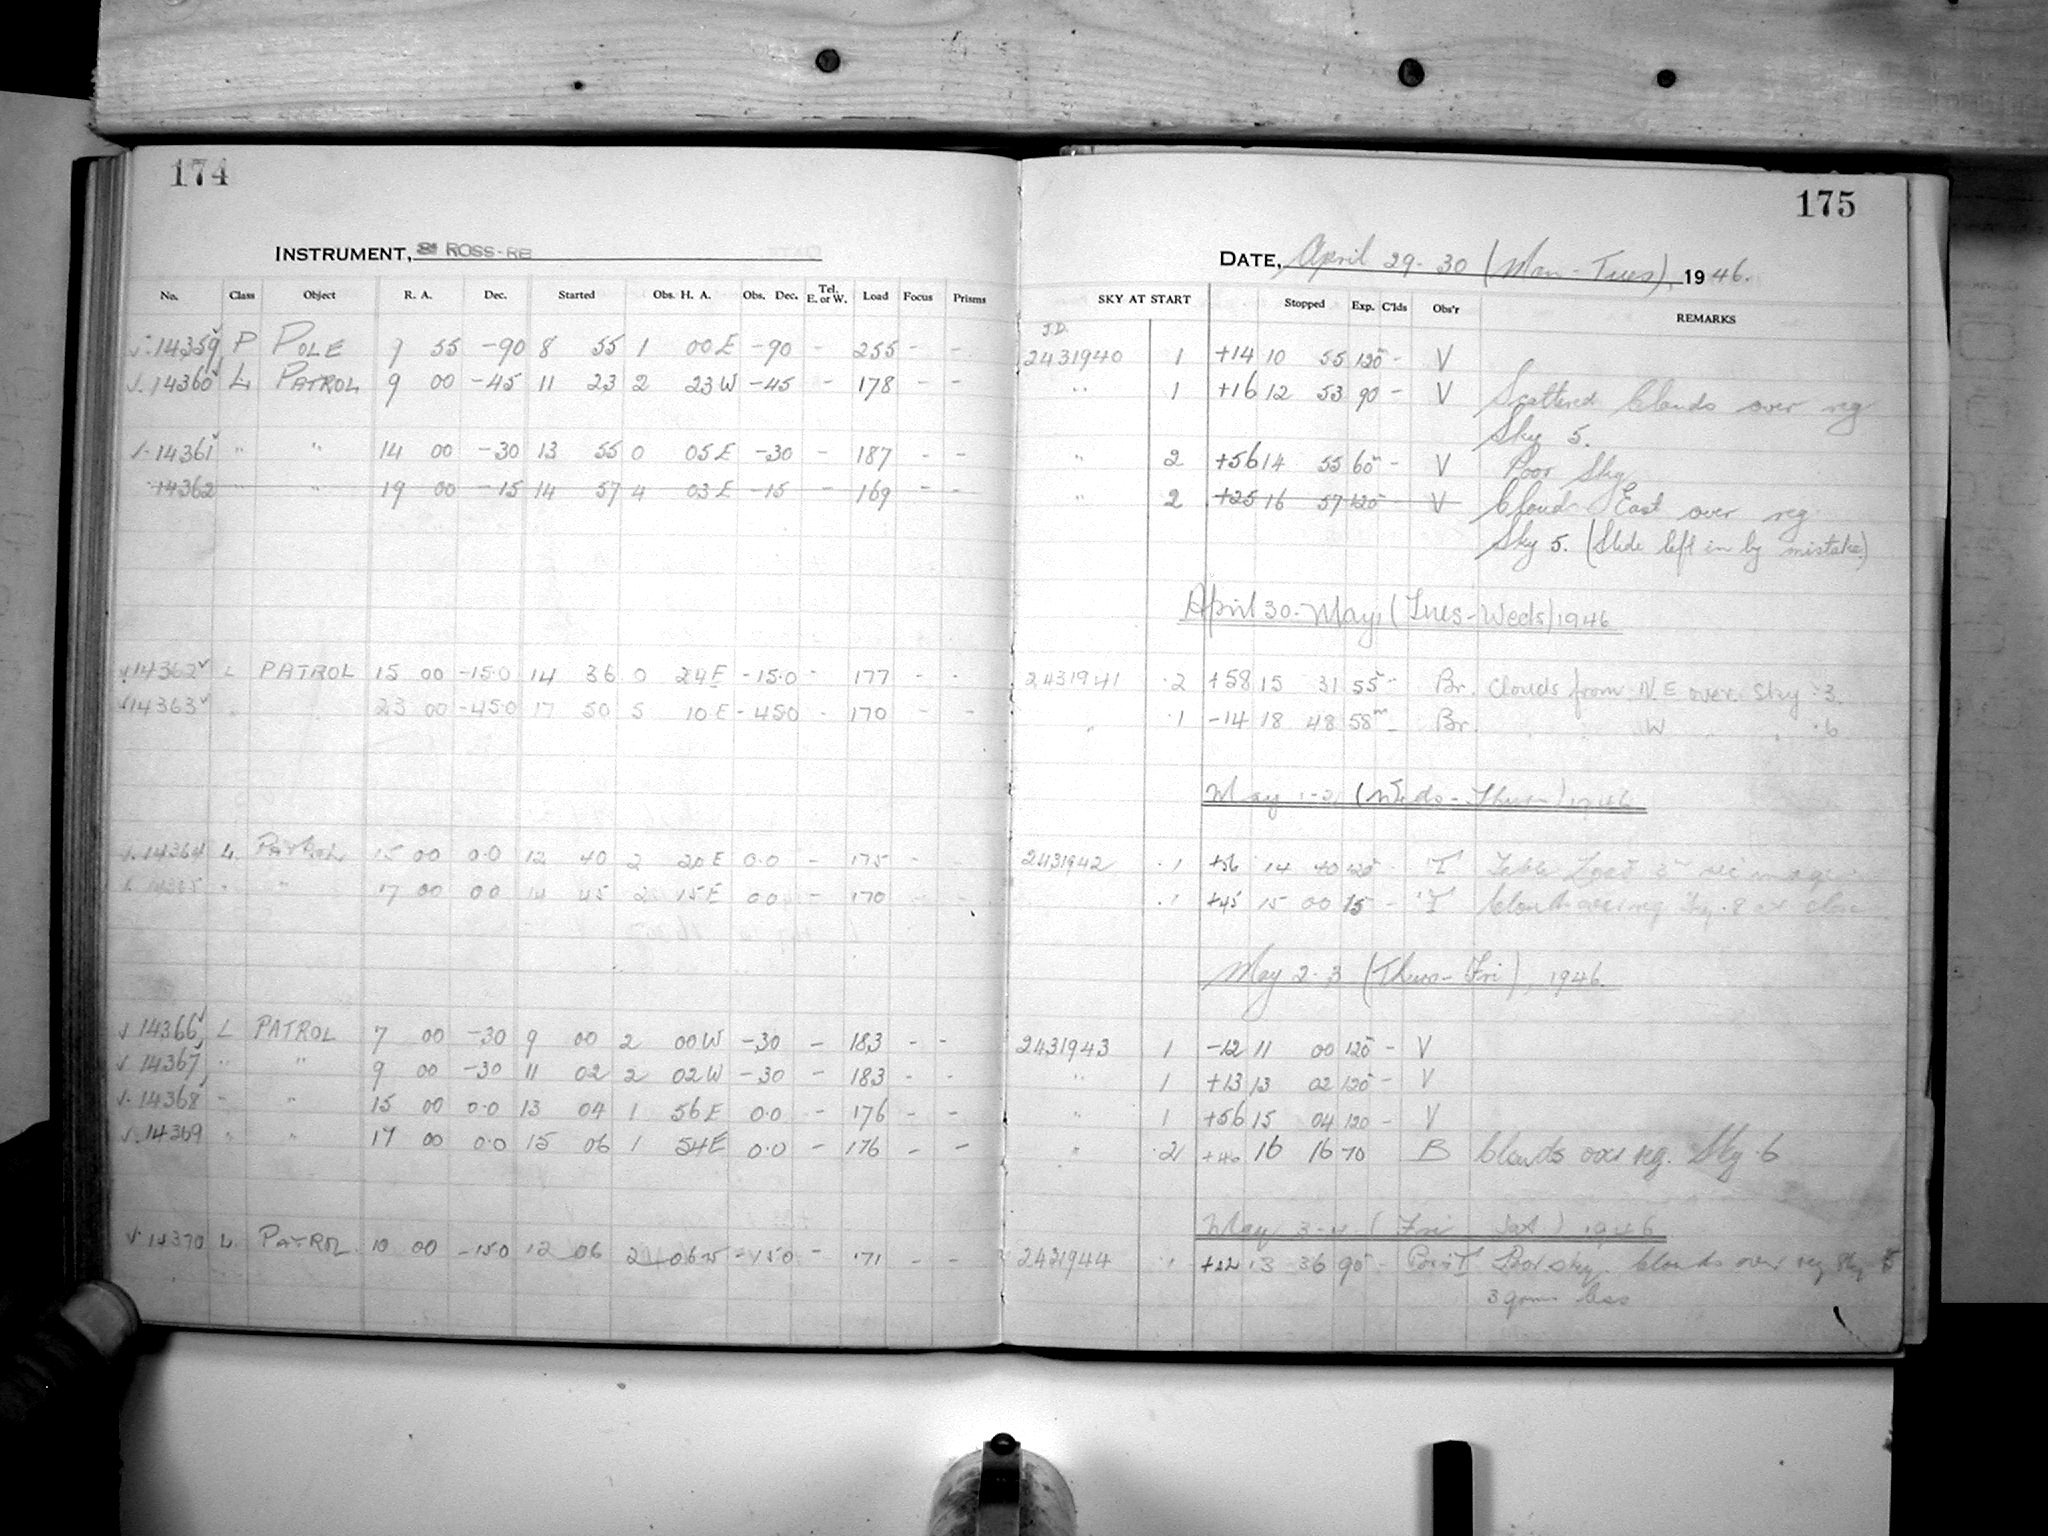 174
INSTRUMENT, ROSS-
No. Class Object R. A. Dec. Started Obs. H. A. Obs. Dec. Tel. E. or W. Load Focus Prisms
14359 P POLE 9 55 -90 8 55 1 00 E -90 - 255 - -
14360 L PATROL 9 00 -45 11 23 2 23 W -45 - 178 - -
14361 " " 14 00 -30 13 55 0 05 E -30 - 187 - -
14362 " " 19 00 -15 14 57 4 03 E -15 - 169 - -
14362 L PATROL 15 00 -15.0 14 36 0 24 E -15.0 - 177 - -
14363 " " 23 00 -45.0 17 50 5 10 E -45.0 - 170 - -
14364 L PATROL 15 00 0.0 12 40 2 20 E 0.0 - 175 - -
" " 17 00 0.0 14 45 2 15 E 0.0 - 170 - -
14366 L PATROL 7 00 -30 9 00 2 00 W -30 - 183 - -
14367 " " 9 00 -30 11 02 2 02 W -30 - 183 - -
14368 " " 15 00 0.0 13 04 1 56 E 0.0 - 176 - -
14369 " " 17 00 0.0 15 06 1 54 E 0.0 - 176 - -
14370 L PATROL 10 00 -15.0 12 06 2 06 -15.0 - 171 - -
175
DATE, April 29-30 (Mon-Tues), 1946.
SKY AT START Stopped Exp. C'lds Obs'r REMARKS
J.D.
2431940 1 +14 10 55 120 - V
" 1 +16 12 53 90 - V Scattered Clouds over reg
Sky 5.
" 2 +56 14 55 60 - V Poor Sky
" 2 +25 16 57 120 - V Cloud East over reg
Sky 5. (Slide left in by mistake)
April 30-May 1 (Tues-Weds) 1946
2431941 .2 +58 15 31 55 - Br. Clouds from N E over. Sky .3.
" .1 -14 18 48 58m - Br. " " W " " .6
May 1-2 (Weds-Thurs-) 1946
2431942 .1 +56 14 40 120 - T
.1 +45 15 00 15 - T Cloud over reg Sky .8 at close
May 2-3 (Thurs-Fri), 1946.
2431943 1 -12 11 00 120 - V
" 1 +13 13 02 120 - V
" 1 +56 15 04 120 - V
" .2 16 16 70 B Clouds over reg. Sky .6
May 3-4 (Fri Sat.) 1946
2431944 .1 13 36 90 - Poor sky. Clouds over reg Sky
3 less